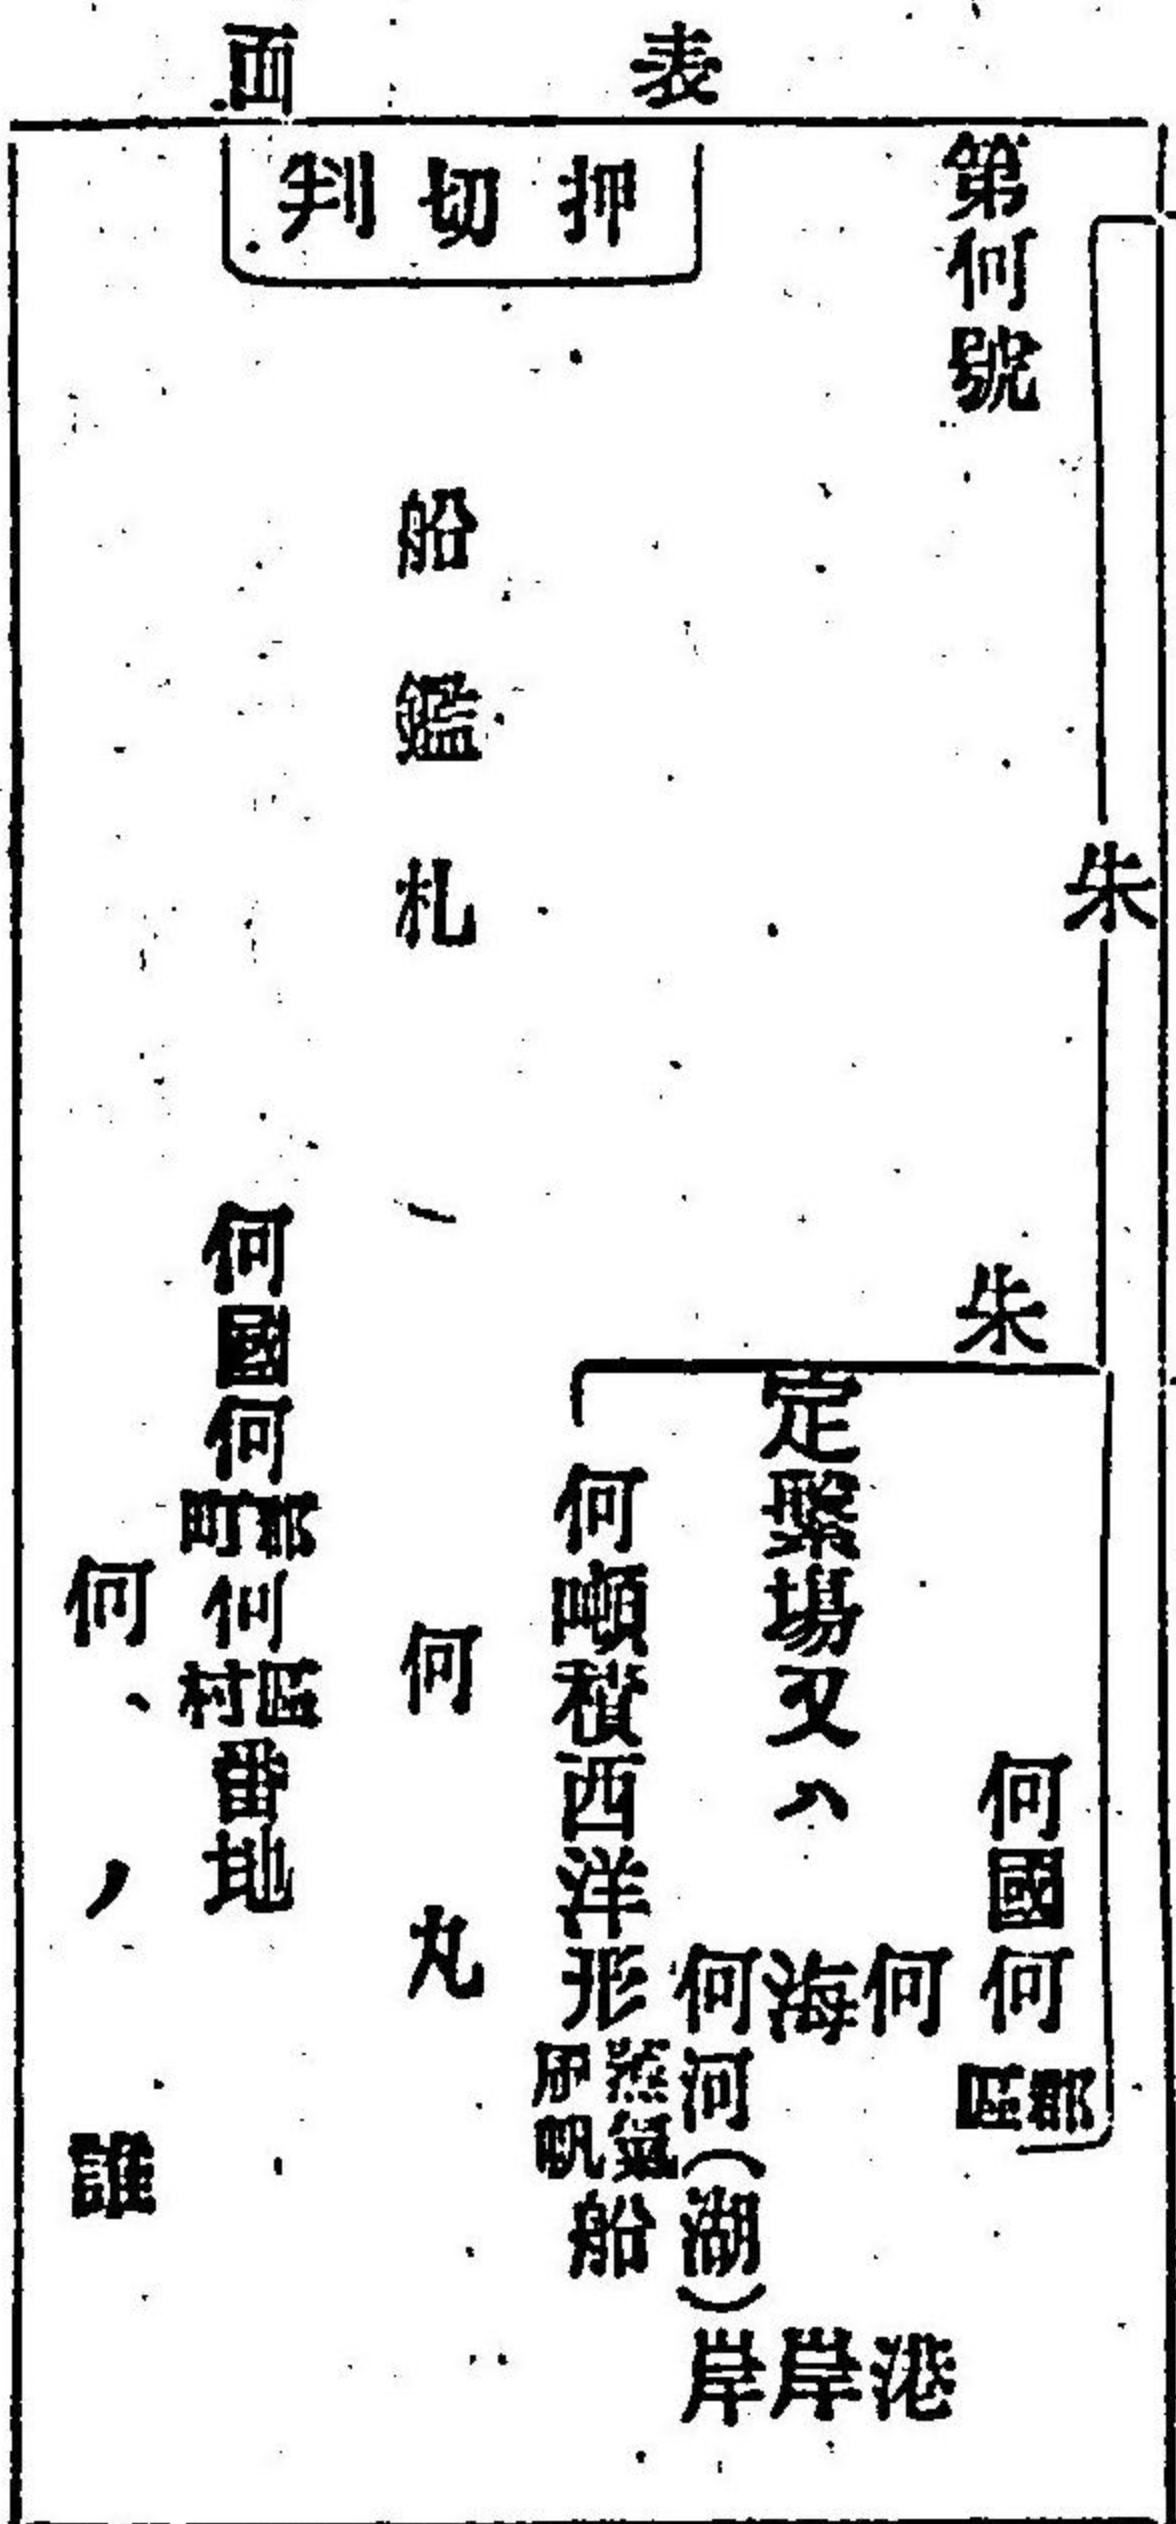 表面
第何號
押切判
朱
朱
何國何郡區
定繫場又ハ
何港
海岸
何河(湖)岸
何噸積西洋形蒸氣風帆船
船鑑札
何丸
何國何郡町何區村番地
何、ノ誰